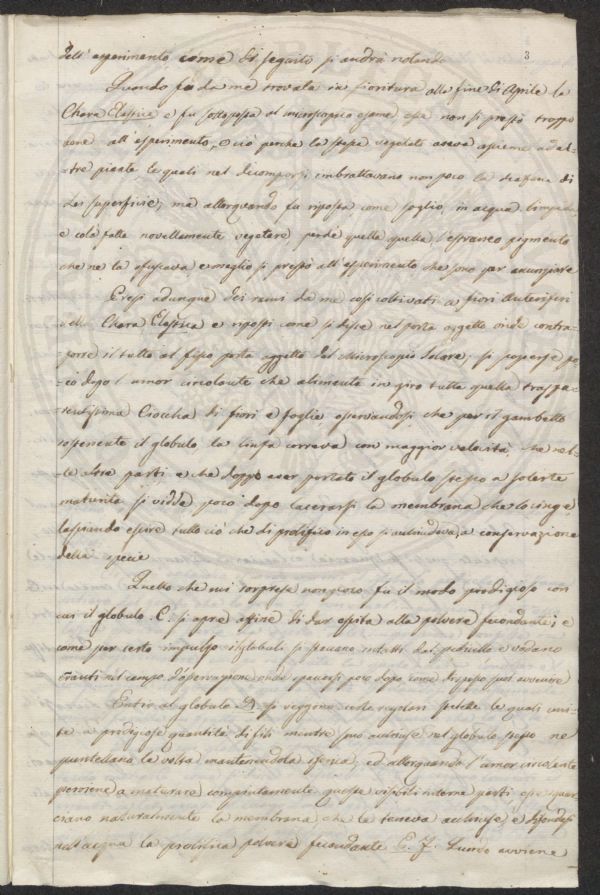 dell'esperimento come di seguito si andrà notando
3
Quando fu da me trovata in fioritura alla fine di Aprile la
Chara Elastica e fu sottoposta al microscopico esame essa non si prestò troppo
bene all'esperimento, e ciò perche la stessa vegetale aveva assieme ad al-
-tre piante le quali nel decomporsi imbrattavano non poco la
di lei superficie; ma allorquando fu riposta come soglio, in acqua limpida
e colà fatta novellamente vegetare perdè quella quella, l'estraneo pigmento
che ne la offuscava, e meglio si prestò all'esperimento che sono per anunziare
Presi adunque dei rami da me così coltivati a fiori
Chara Elastica e riposti come si disse nel porta oggetto onde contra-
porre il tutto al fisso porta oggetto del Microscopio Solare; si scoperse po-
-co dopo l'umor circolante che alimenta in giro tutta quella traspa-
-rentissima Ciocchia di fiori e foglie osservandosi, che per il gambetto
sostenente il globulo la linfa correva con maggior velocità, che nel-
-le altre parti e che doppo aver portato il globulo stesso a solerte
maturità si vidde poco dopo lacerarsi la membrana che lo cinge
lasciando escire tutto ciò che di prolifico in esso si racchiudeva, a conservazione
della specie
Quello che mi sorprese non poco fu il modo prodigioso con
cui il globulo C. si apre affine di dar escita alla polvere fecondante; e
come per certo impulso i globuli si staccano intatti dal peduncolo e vadano
erranti nel campo d'osservazione, onde aprirsi poco dopo come spesso suol avvenire
Entro al globulo D. si veggono certe regolari the le quali uni-
-te a prodigiosa quantità di fili mentre sono racchiuse nel globulo stesso ne
puntellano la volta mantenendola sferica, ed allorquando l'umor circolante
perviene a maturare compiutamente queste visibili interne parti esse squar-
ciano naturalmente la membrana che le teneva rachiuse, e diffondesi
nell'acqua la prolifica polvere fecondante E. F. Quando avviene